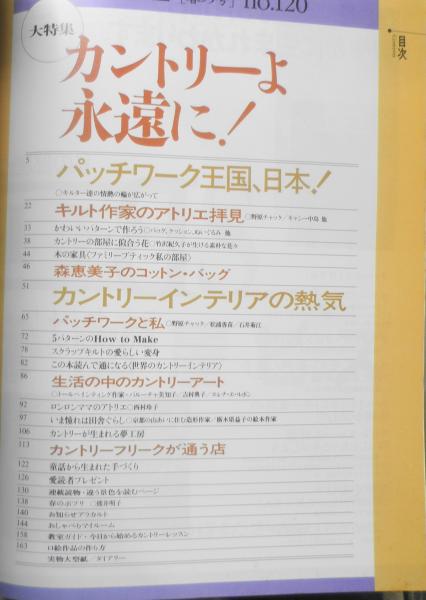 [春のプサ] no.120
目次
大特集
カントリーよ
永遠に!
5
パッチワーク王国、日本!
○キルター達の情熱の輪が広がって
22 キルト作家のアトリエ拝見 ○野原チャック/キャシー中島 他
33 かわいいパターンで作ろう ○バッグ、クッション、ぬいぐるみ 他
38 カントリーの部屋に似合う花 ○竹沢紀久子が生ける素朴な花々
44 木の家具〈ファミリーブティック私の部屋〉
46 森恵美子のコットン・バッグ
51 カントリーインテリアの熱気
65 パッチワークと私 ○野原チャック/松浦香苗/石井菊江
72 5パターンのHow to Make
78 スクラップキルトの愛らしい変身
82 この本読んで通になる〈世界のカントリーインテリア〉
86 生活の中のカントリーアート
92 ロンロンママのアトリエ ○西村玲子
97 いま憧れは田舎ぐらし
106 カントリーが生まれる夢工房
113 カントリーフリークが通う店
122 童話から生まれた手づくり
126 愛読者プレゼント
130 連載読物・違う景色を読むページ
138 春のポプリ
140 お知らせアラカルト
144 おしゃべりマイルーム
158 教室ガイド・今日から始めるカントリーレッスン
163 口絵作品の作り方
実物大型紙/ダイアリー